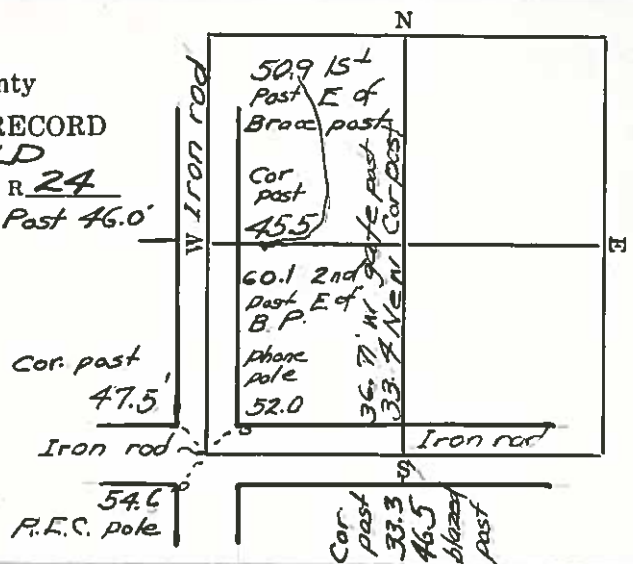 N
nty
RECORD
LD
R 24
Post 46.0'
Iron rod
50.9 1st
Post E of
Brace post
Cor
post
45.5
W
E
60.1 2nd
post E of
B.P.
phone
pole
52.0
36.7' nw gate post
33.4 New Cor post
Cor. post
47.5'
Iron rod
Iron rod
S
54.6
R.E.C. pole
Cor
post
33.3
46.5
blazed
post